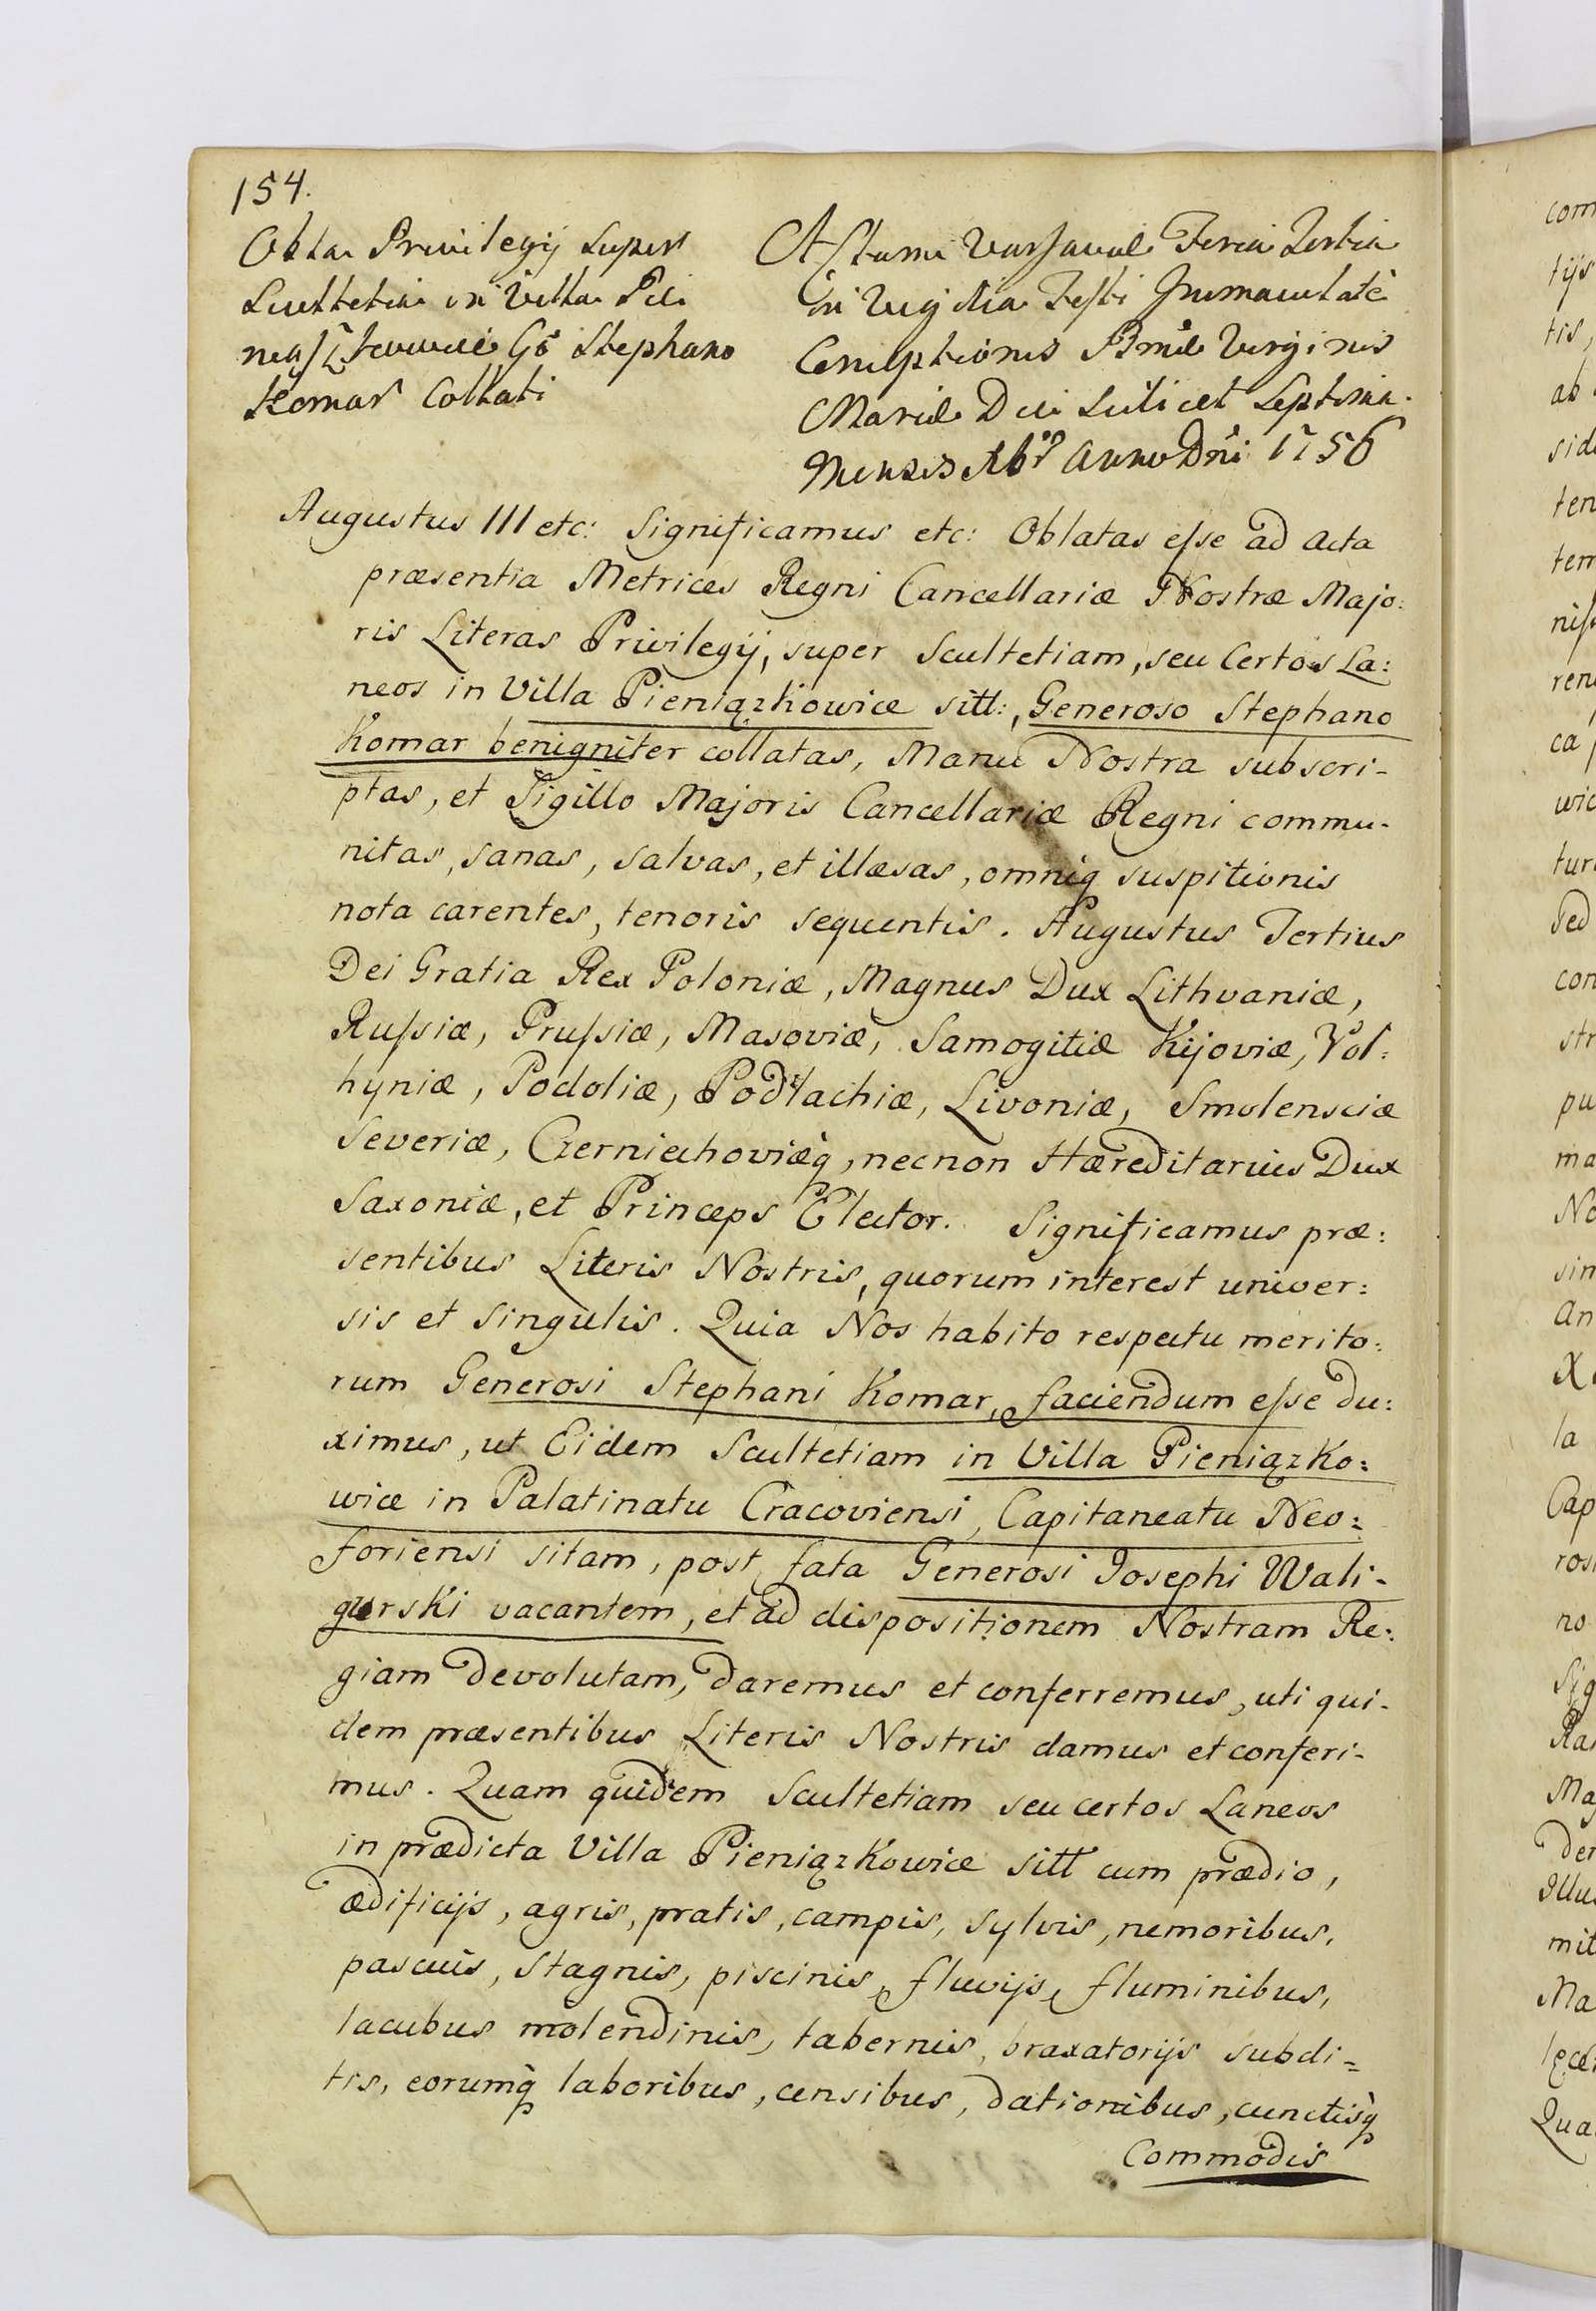 154.
Obta Privilegij super
Scultetia in Villa Pie
niąszkowice Gō Stephano
Komar Collati
Actum Varsaviæ Feria Tertia
in Vigilia Festi Immaculatæ
Conceptionis Bmæ Virginis
Mariæ Die Scilicet Septima
Mensis Xbr Anno Dni 1756
Augustus III etc: Significamus etc: Oblatas eſse ad Acta
præsentia Metrices Regni Cancellariæ Nostræ Majo:
ris Literas Privilegij, super Scultetiam, seu Certos La:
neos in Villa Pieniązkowice sitt:, Generoso Stephano
Komar benigniter collatas, Manu Nostra subscri-
ptas, et Sigillo Majoris Cancellariæ Regni commu-
nitas, sanas, salvas, et illæsas, omniq suspitionis
nota carentes, tenoris sequentis. Augustus Tertius
Dei Gratia Rex Poloniæ, Magnus Dux Lithvaniæ,
Ruſsiæ, Pruſsiæ, Masoviæ, Samogitiæ Kijoviæ, Vol:
hyniæ, Podoliæ, Podlachiæ, Livoniæ, Smolensciæ
Severiæ, Czerniechoviæq, necnon Hæreditarius Dux
Saxoniæ, et Princeps Elector. Significamus præ:
sentibus Literis Nostris, quorum interest univer:
sis et singulis. Quia Nos habito respectu merito:
rum Generosi Stephani Komar, faciendum eſse du:
ximus, ut Eidem Scultetiam in Villa Pieniązko:
wice in Palatinatu Cracoviensi, Capitaneatu Neo:
foriensi sitam, post fata Generosi Josephi Wali-
gurski vacantem, et ad dispositionem Nostram Re:
giam devolutam, daremus et conferremus, uti qui-
dem præsentibus Literis Nostris damus et conferi-
mus. Quam quidem Scultetiam seu certos Laneos
in prædicta Villa Pieniązkowice sitt cum prædio,
ædificijs, agris, pratis, campis, sylvis, nemoribus,
pascuis, stagnis, piscinis, fluvijs, fluminibus,
lacubus molendinis, tabernis, braxatorijs subdi=
tis, eorumq laboribus, censibus, dationibus, cunctisq
Commodis
com
tijs
tis,
ab
side
ten
tem
niſs
ren
ca
wic
tur
Sed
con
str
pu
ma
No
sin
An
X
la
Cap
ros
no
Sig
Ra
Ma
der
Illu
mit
Ma
Qua